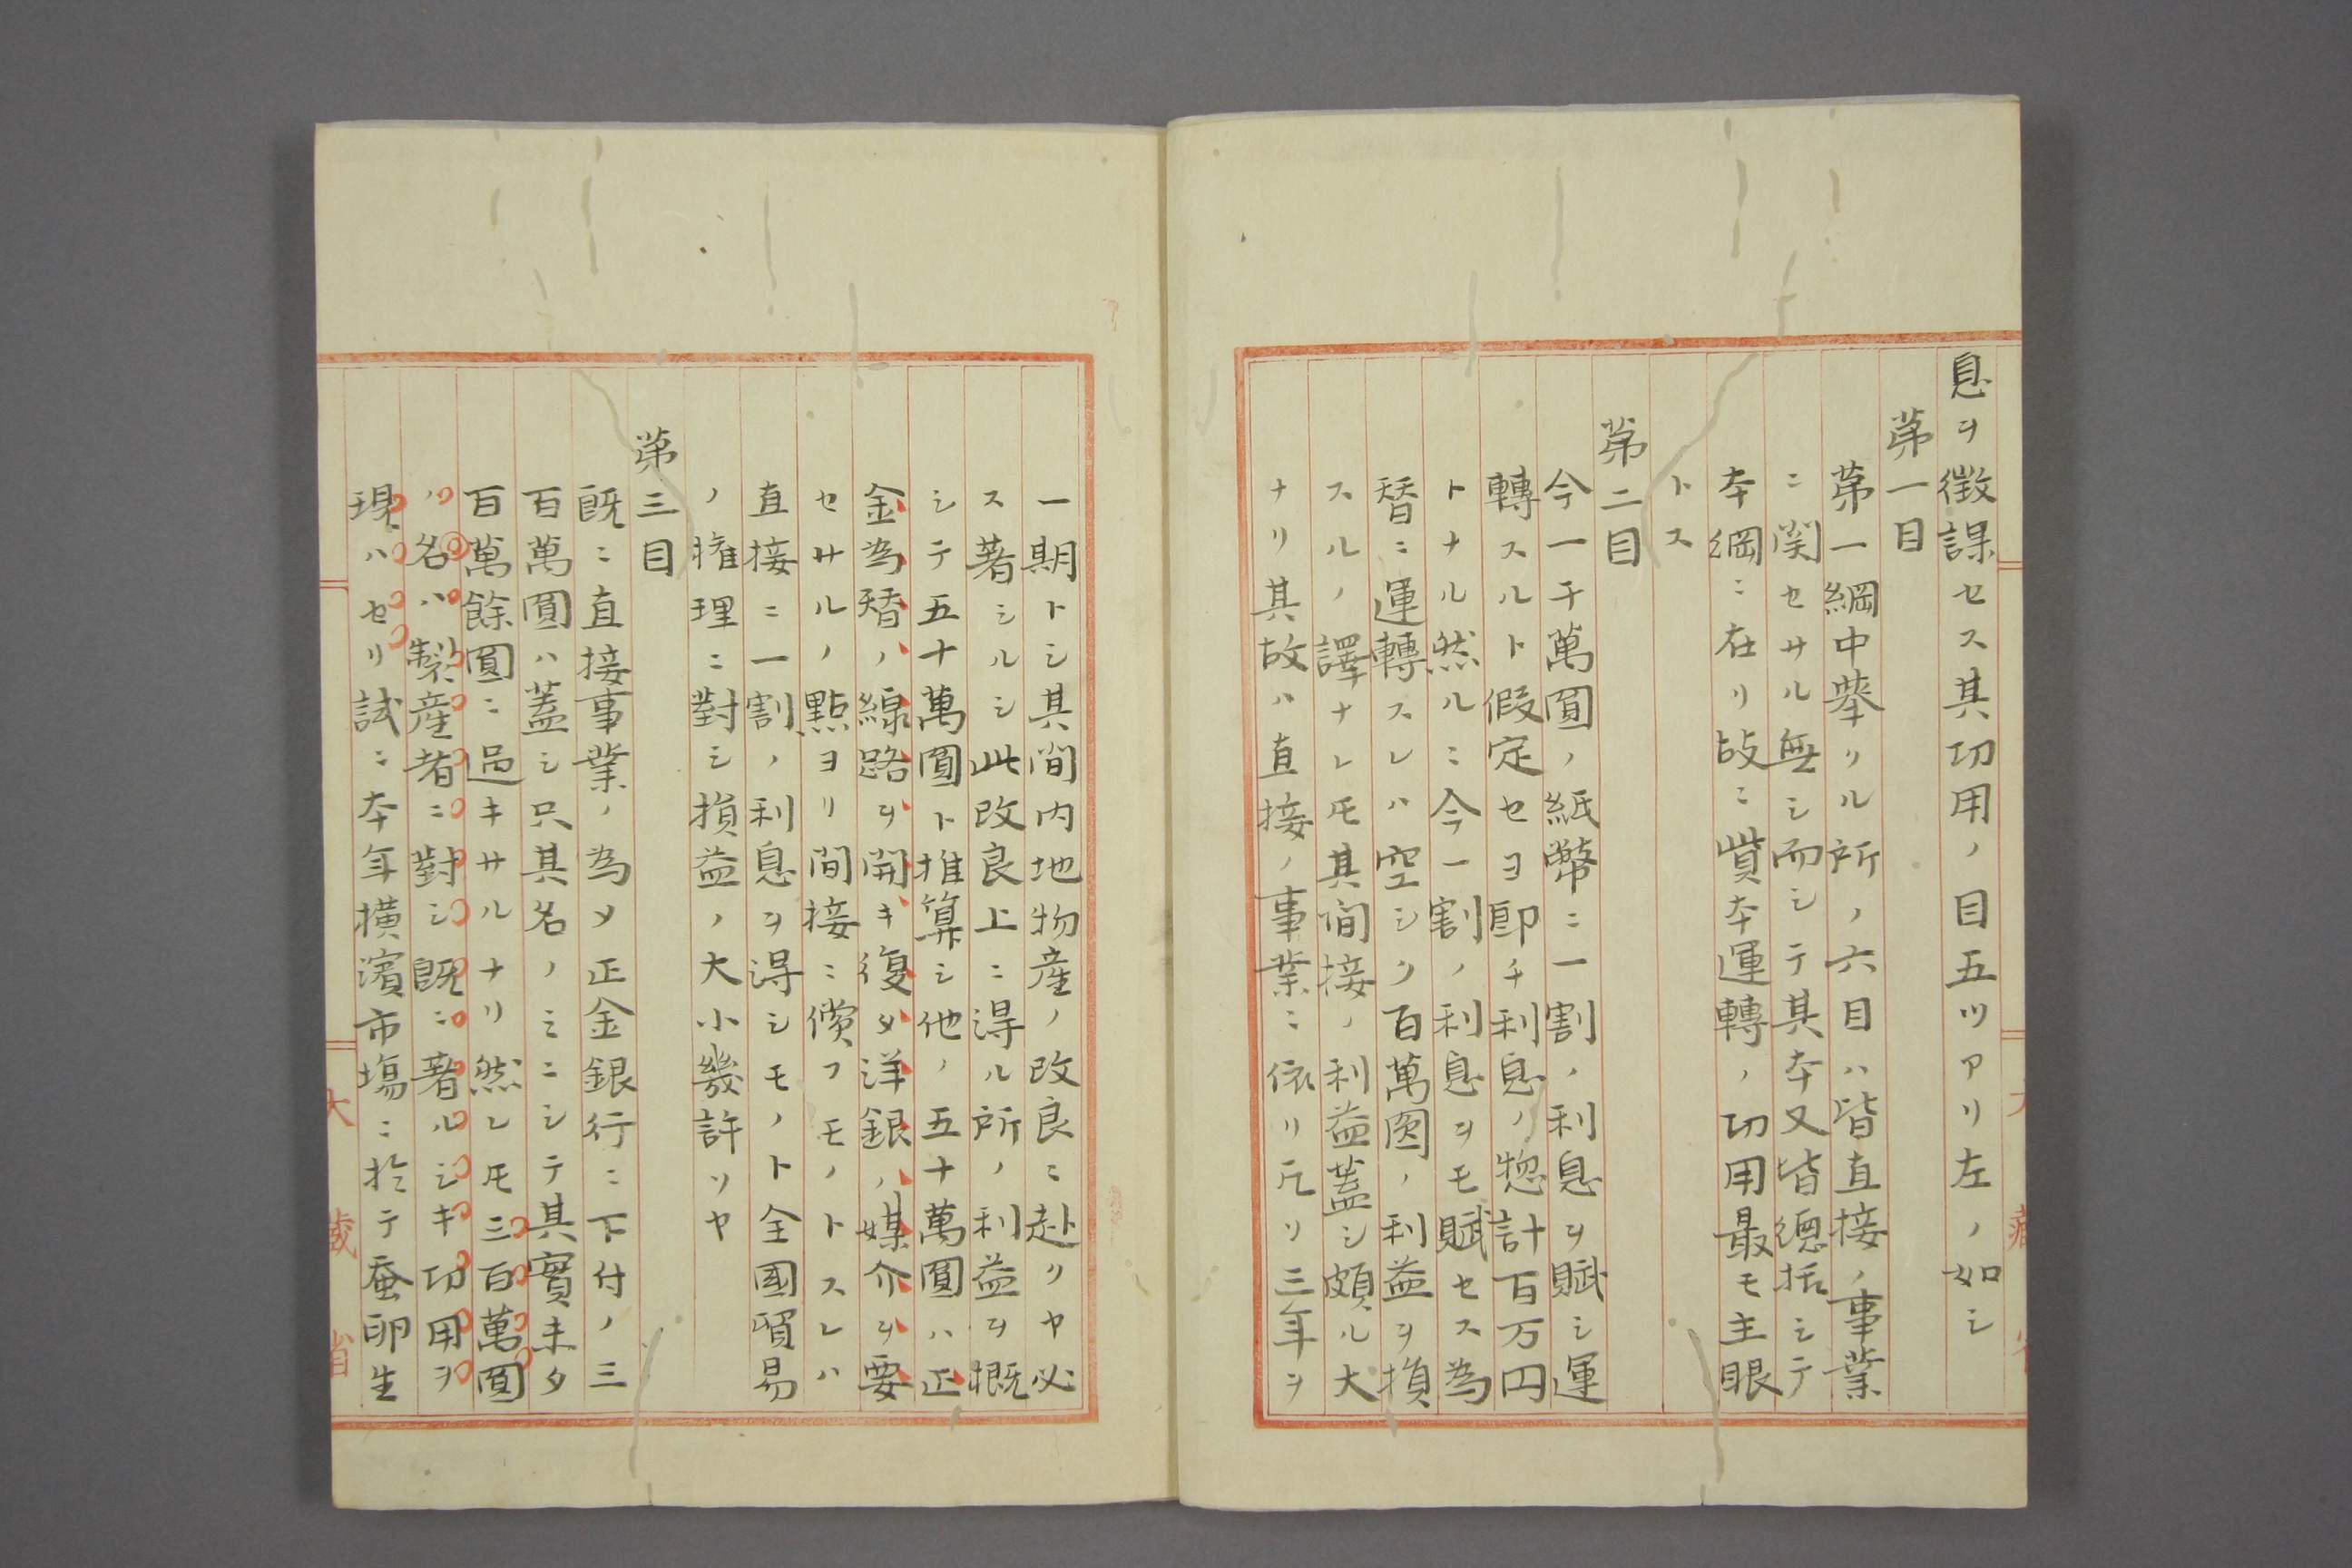 息ヲ徴課セス其切用ノ目五ツアリ左ノ如シ
第一目
第一綱中挙ル所ノ六目ハ皆直接ノ事業
ニ関セサル無シ而シテ其本又皆總括シテ
本綱ニ在リ故ニ資本運轉ノ切用最モ主眼
トス
第二目
今一千萬圓ノ紙幣ニ一割ノ利息ヲ賦シ運
轉スルト假定セヨ即チ利息ノ惣計百万円
トナル然ルニ今一割ノ利息ヲモ賦セス為
替ニ運轉スレハ空シク百萬圓ノ利益ヲ損
スルノ譯ナレ𪜈其間接ノ利益蓋シ頗ル大
ナリ其故ハ直接ノ事業ニ依リ凡ソ三年ヲ
一期トシ其間内地物産ノ改良ニ赴リヤ必
ス著シルシ此改良上ニ得ル所ノ利益ヲ概
シテ五十萬圓ト推算シ他ノ五十萬圓ハ正
金為替ノ線路ヲ開キ復タ洋銀ノ媒介ヲ要
セサルノ點ヨリ間接ニ償フモノトスレハ
直接ニ一割ノ利息ヲ得シモノト全國貿易
ノ権理ニ對シ損益ノ大小幾許ソヤ
第三目
既ニ直接事業ノ為メ正金銀行ニ下付ノ三
百萬圓ハ蓋シ只其名ノミニシテ其實未タ
百萬餘圓ニ過キサルナリ然レ𪜈三百萬圓
ノ名ハ製産者ニ對シ既ニ著ルシキ切用ヲ
現ハセリ試ニ本年横濱市塲ニ於テ蚕卵生
大藏省
大藏省